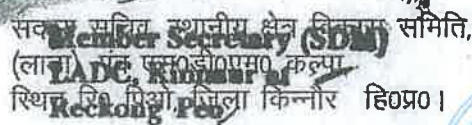 सदस्य सचिव स्थानीय क्षेत्र विकास समिति,
Member Secretary (SDM)
(लाडा) एवं एस0डी0एम0 कल्पा
LADC, Kinnaur at
स्थित रि0 पिओ, जिला किन्नौर हि0प्र0।
Reckong Peo